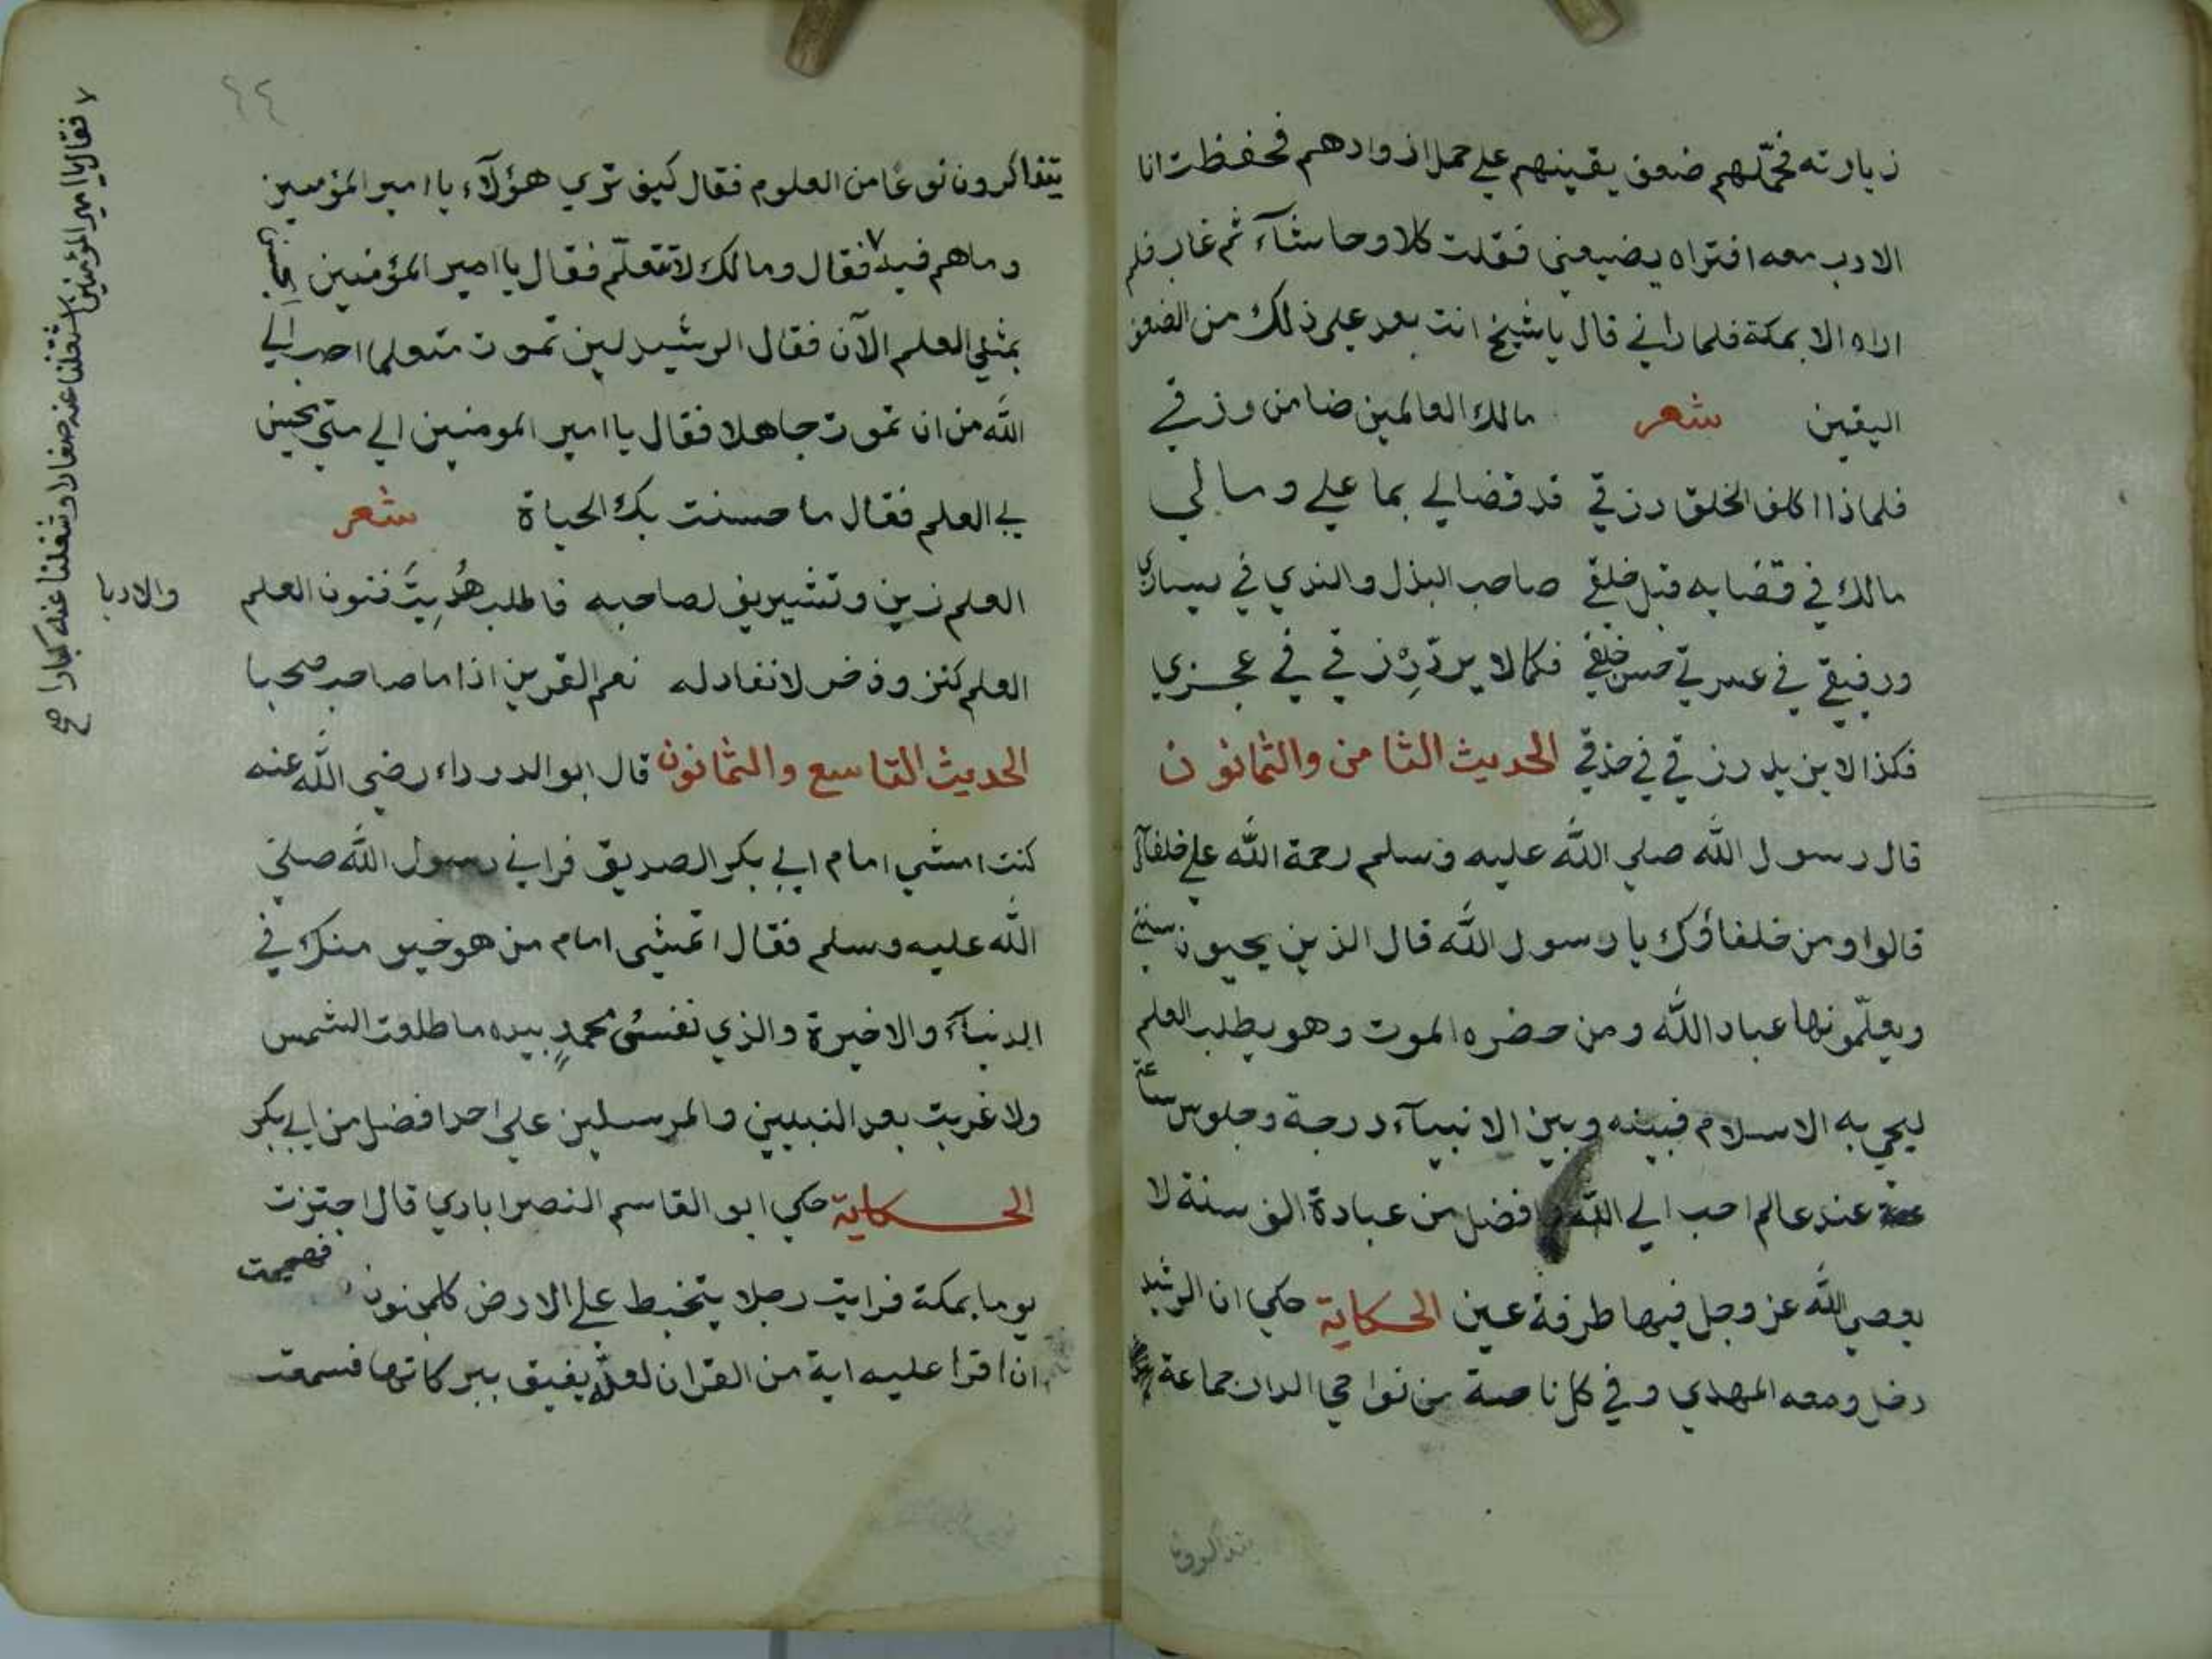 زيارته فحملهم ضعف يقينهم علي حمل ازوادهم فحفظت انا
الادب معه افتراه يضيعني فقلت كلا وحاشآء ثم غاب فلم
اراه الا بمكة فلما راني قال يا شيخ انت بعد علي ذلك من الضعف
اليقين شعر مالك العالمين ضامن رزقي
فلماذا اكلف الخلق رزقي قد قضا لي بما علي ومالي
مالك في قضايه قبل خلقي صاحب البذل والندي في يساري
ورفيقي في عسرتي حسن خلقي فكما لا يرد رزقي في عجزي
فكذا لا يزيد رزقي في حذقي الحديث الثامن والثمانون
قال رسول الله صلي الله عليه وسلم رحمة الله علي خلفآي
قالوا ومن خلفاؤك يا رسول الله قال الذين يحيون سنتي
ويعلّمونها عباد الله ومن حضره الموت وهو يطلب العلم
ليحي به الاسلام فبينه وبين الانبيآء درجة وجلوس ساعة
عند عالم احب الي الله وافضل من عبادة الف سنة لا
يعصي الله عز وجل فيها طرفة عين الحكاية حكي ان الرشيد
دخل ومعه المهدي وفي كل ناحية من نواحي الدار جماعة
يتذاكرون
٦٤
يتذاكرون نوعًا من العلوم فقال كيف تري هؤلآء يا امير المؤمنين
وما هم فيه ٧ فقال ومالك لا تتعلّم فقال يا امير المؤمنين
بمثلي العلم الآن فقال الرشيد لين تموت متعلما احب الي
الله من ان تموت جاهلا فقال يا امير المومنين الي متي يحسن
بي العلم فقال ما حسنت بك الحياة شعر
العلم زين وتشريف لصاحبه فاطلب هُدِيتَ فنون العلم
والادبا
العلم كنز وذخر لا نفاد له نعم القرين اذا ما صاحب صحبا
الحديث التاسع والثمانون قال ابو الدرداء رضي الله عنه
كنت امشي امام ابي بكر الصديق فراني رسول الله صلي
الله عليه وسلم فقال اتمشي امام من هو خير منك في
الدنيآء والاخيرة والذي نفسُ محمدٍ بيده ما طلعت الشمس
ولا غربت بعد النبيين والمرسلين علي احد افضل من ابي بكر
الحكاية حكي ابو القاسم النصرابادي قال اجتزت
يوما بمكة فرايت رجلا يتخبط علي الارض كالمجنون فهممت
ان اقرا عليه اية من القران لعلّه يفيق ببركاتها فسمعت
٧ فقال يا امير المؤمنين شغلنا عنه صغارا وشغلنا عنه كبارا صح